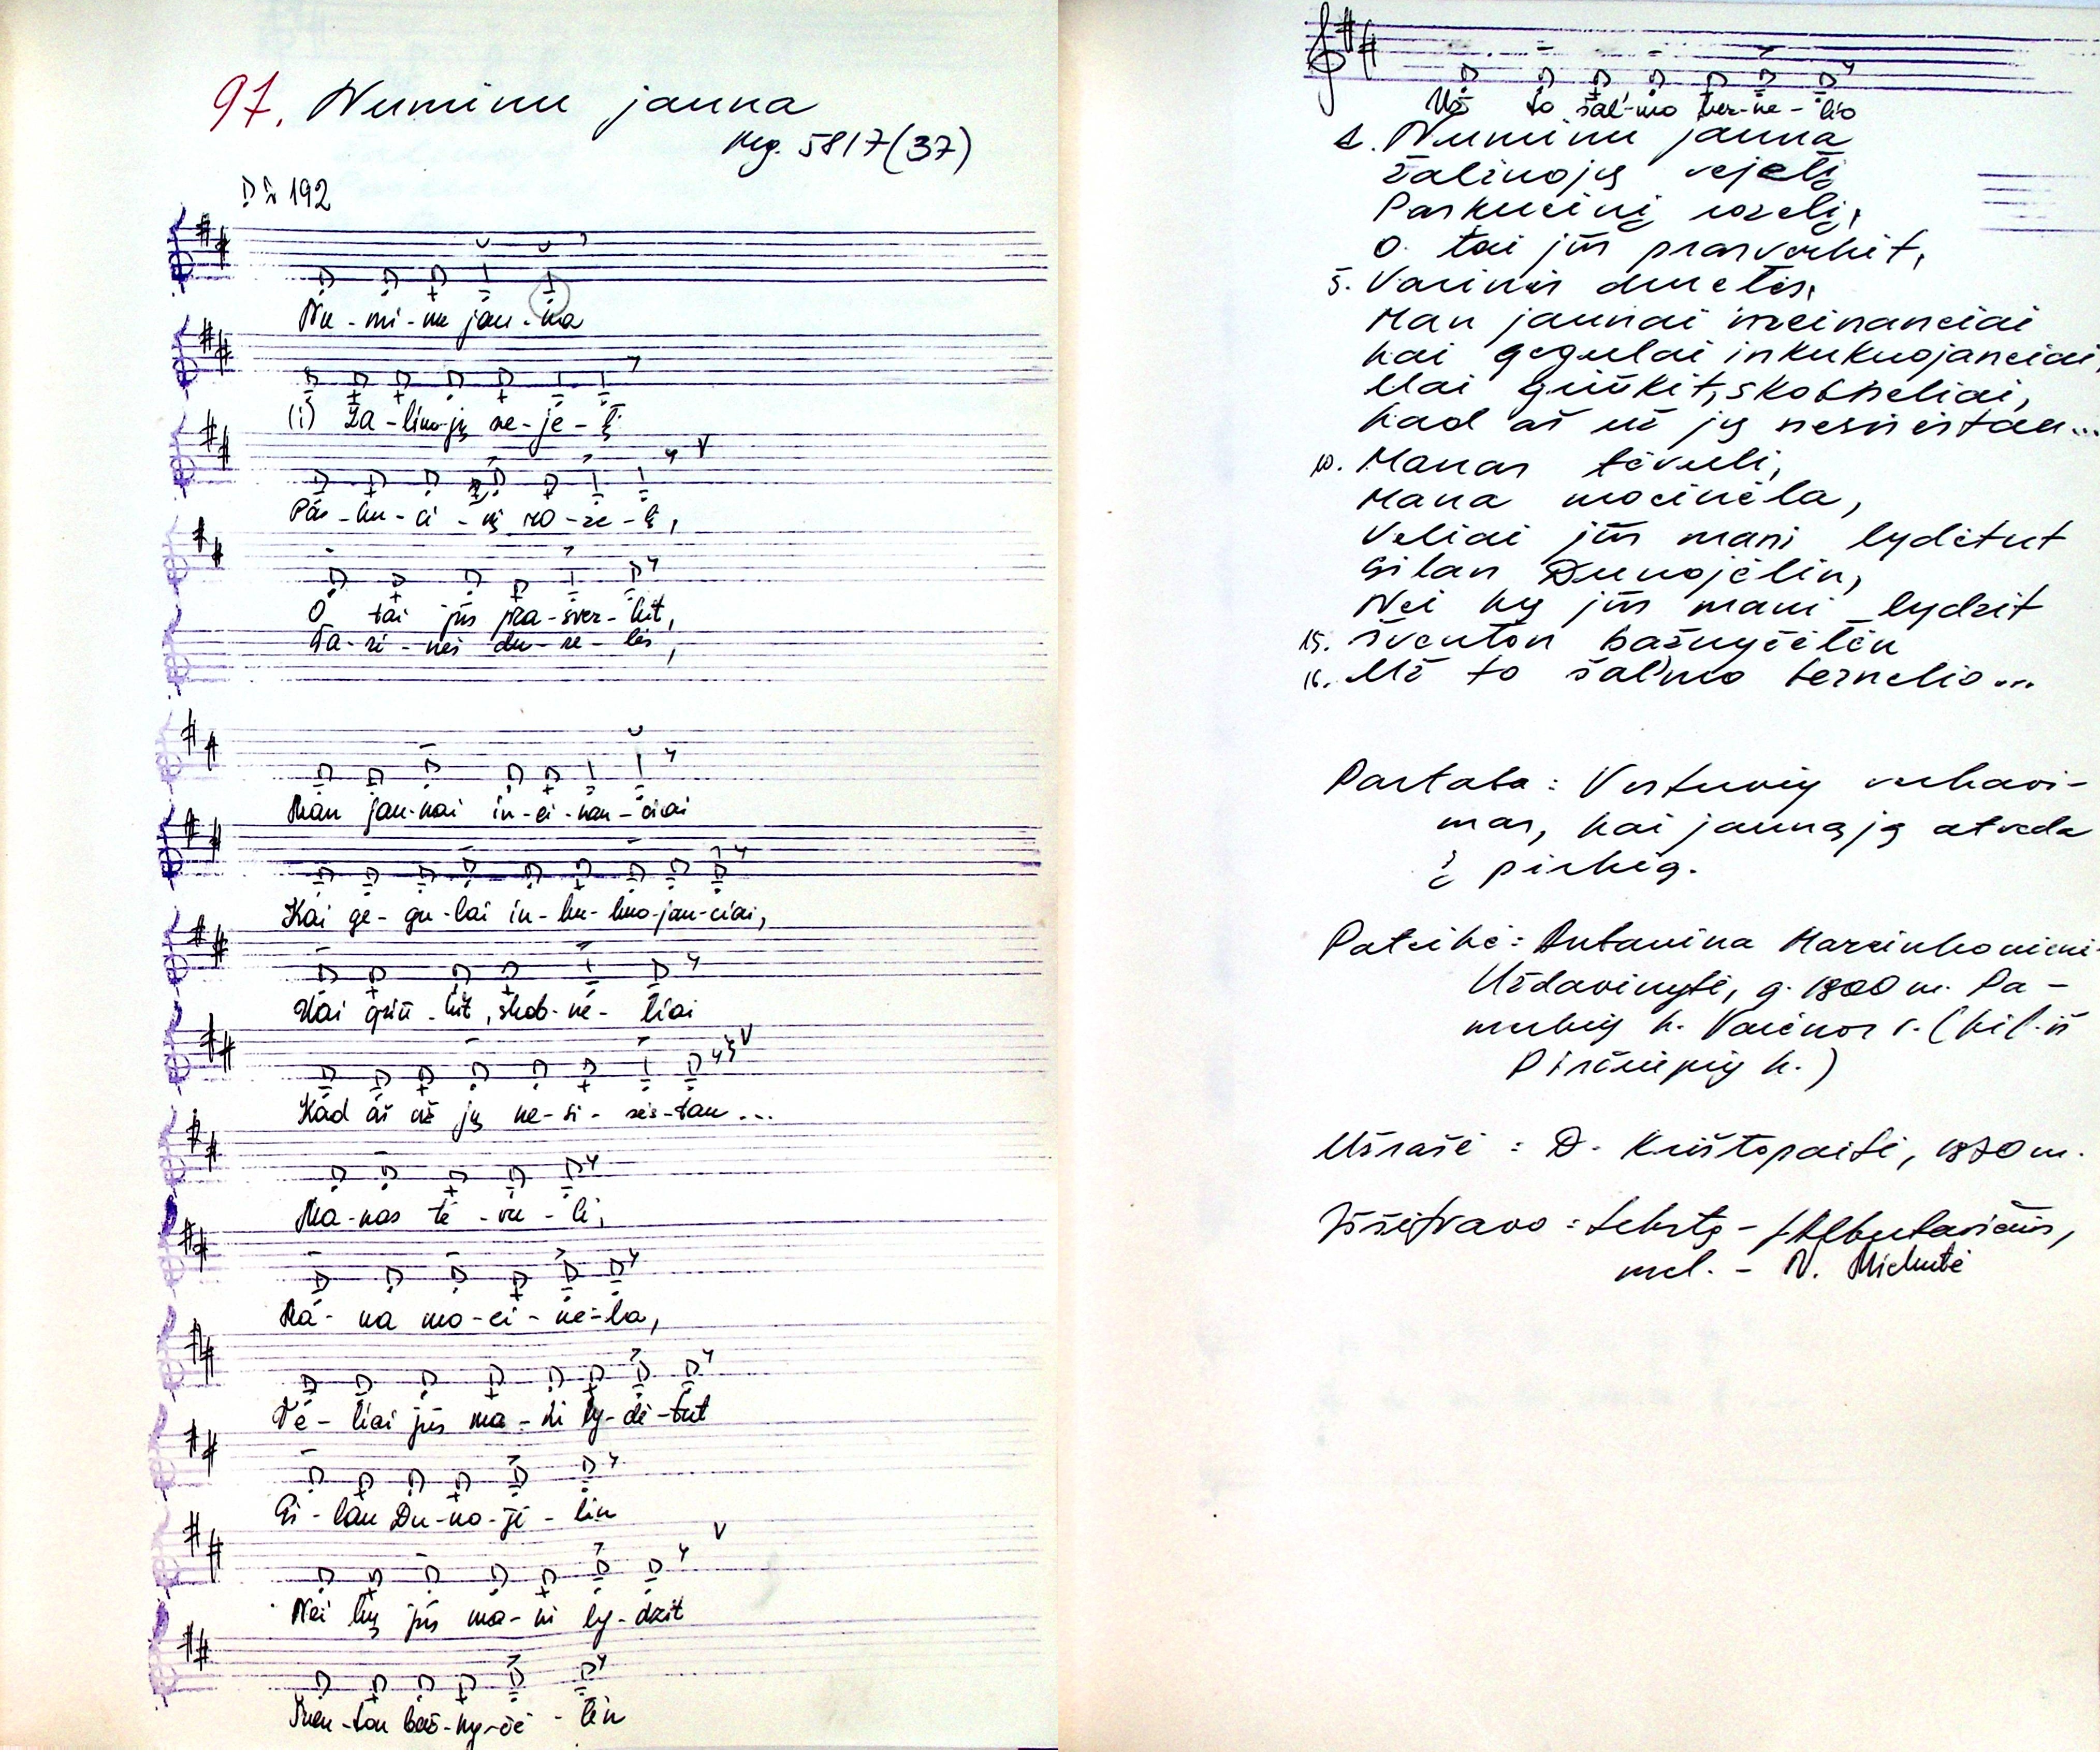 97. Numinu jauna
Mg. 5817(37)
192
Nu - mi - nu jau - na
(i) Ža - lino-jų ve - je - lį
Par - ku - ci - nį ro - ze - lį,
O tai jūs pra - sver - kit,
Va - ri - nės du - re - lės,
Man jau-nai in - ei - nan - čiai
Kai ge - gu - lai in - ku - kuo-jan-ciai,
Užai griū - kit, skob - ne - liai
Kad aš už jų ne - si - ris - tau ...
Ma - nas tė - vu - li,
Ma - na mo - ci - nė - la,
Ve - liai jūs ma - ni ly - dė - tut
Gi - lan Du - no - jė - lin
Nei kų jūs ma - ni ly - dzit
Šven - ton baž - ny - čė - lėn
Už to šal'-mo ber-ne - lio
1. Numinu jauna
žalinojų vejelį
Parkucinį rozelį,
O tai jūs prasverkit,
5. Varinės durelės,
Man jaunai ineinančiai
kai gegulai inkukuojanciai,
Užai griūkit, skobneliai,
kad aš už jų nesiristau...
10. Manas tėvuli,
Mana mocinėla,
Veliai jūs mani lydėtut
Gilan Dunojėlin,
Nei kų jūs mani lydzit
15. šventon bažnyčėlėn
16. Už to šal'mo bernelio...
Pastaba: Vestuvių verkavi-
mas, kai jaunąją atveda
į pirkią.
Pateikė: Antanina Marcinkonienė-
Uždavinytė, g. 1900 m. Pa-
merkių k. Varėnos r. (kil. iš
Pirčiupių k.)
Užrašė: D. Krištopaitė, 1970 m.
Iššifravo: tekstą -
mel. - N. Mickutė